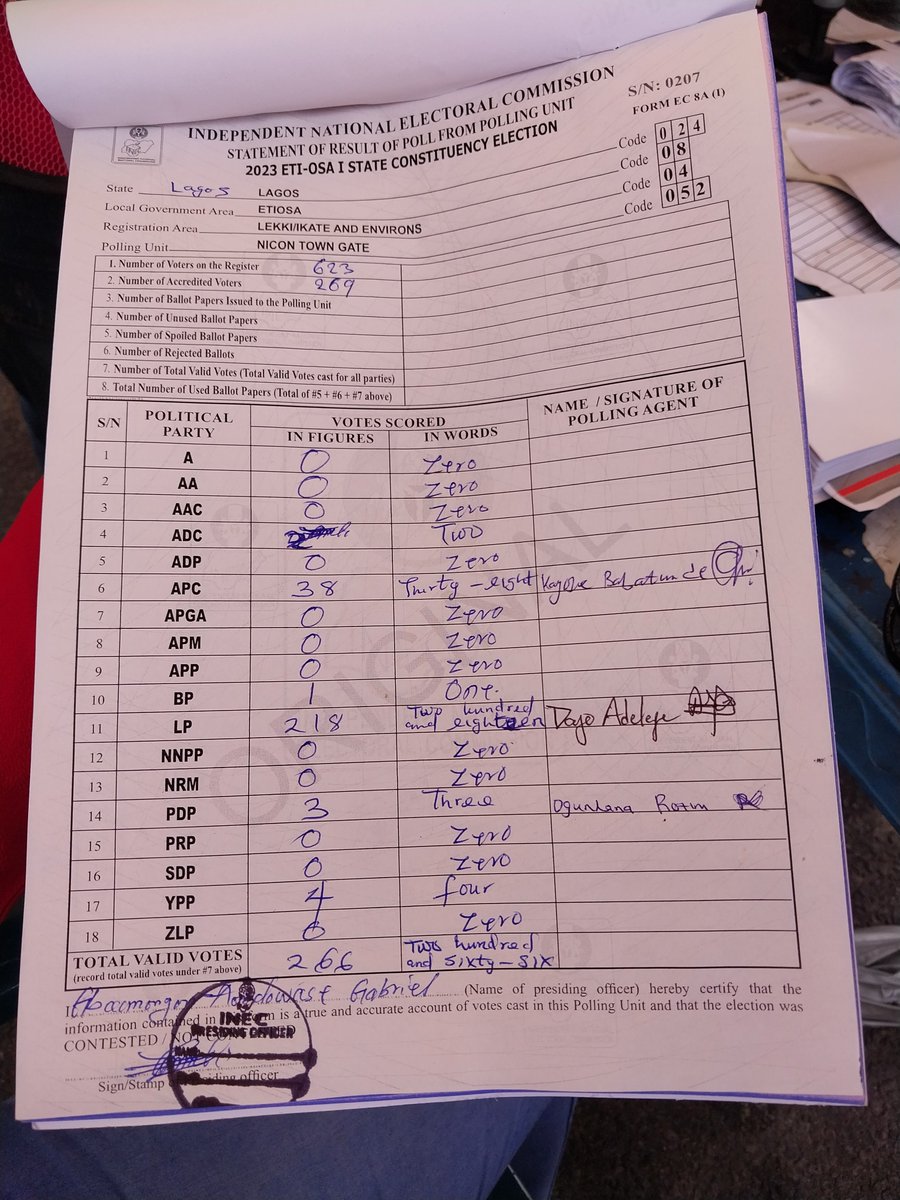 INDEPENDENT NATIONAL ELECTORAL COMMISSION
S/N: 0207
STATEMENT OF RESULT OF POLL FROM POLLING UNIT
FORM EC 8A (I)
2023 ETI-OSA I STATE CONSTITUENCY ELECTION
State Lagos LAGOS Code 0 2 4
Local Government Area ETIOSA Code 0 8
Registration Area LEKKI/IKATE AND ENVIRONS Code 0 4
Polling Unit NICON TOWN GATE Code 0 5 2
1. Number of Voters on the Register 623
2. Number of Accredited Voters 269
3. Number of Ballot Papers Issued to the Polling Unit
4. Number of Unused Ballot Papers
5. Number of Spoiled Ballot Papers
6. Number of Rejected Ballots
7. Number of Total Valid Votes (Total Valid Votes cast for all parties)
8. Total Number of Used Ballot Papers (Total of #5 + #6 + #7 above)
S/N POLITICAL PARTY VOTES SCORED NAME / SIGNATURE OF POLLING AGENT
IN FIGURES IN WORDS
1 A 0 Zero
2 AA 0 Zero
3 AAC 0 Zero
4 ADC 2 Two
5 ADP 0 Zero
6 APC 38 Thirty-eight Kayode Babatunde
7 APGA 0 Zero
8 APM 0 Zero
9 APP 0 Zero
10 BP 1 One.
11 LP 218 Two hundred and eighteen Dayo Adeleye
12 NNPP 0 Zero
13 NRM 0 Zero
14 PDP 3 Three
15 PRP 0 Zero
16 SDP 0 Zero
17 YPP 4 four
18 ZLP 0 Zero
TOTAL VALID VOTES 266 Two hundred and sixty-six
(record total valid votes under #7 above)
I Gabriel (Name of presiding officer) hereby certify that the
information contained in form is a true and accurate account of votes cast in this Polling Unit and that the election was
CONTESTED / NOT
Sign/Stamp presiding officer
INEC
PRESIDING OFFICER
ORIGINAL